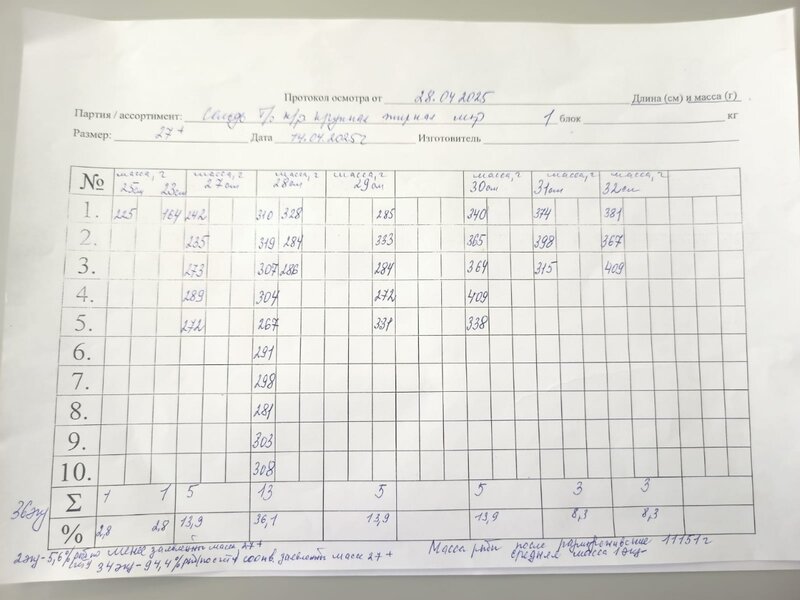 Протокол осмотра от 28.04.2025 Длина (см) и масса (г)
Партия / ассортимент: Сельдь т/о н/р крупная жирная мор 1 блок кг
Размер: 27+ Дата 14.04.2025г Изготовитель
№ масса, г масса, г масса, г масса, г масса, г масса, г масса, г
25см 23см 27см 28см 29см 30см 31см 32см
1. 225 164 242 310 328 285 340 374 381
2. 235 319 284 333 365 398 367
3. 273 307 286 284 364 315 409
4. 289 304 272 409
5. 272 267 331 338
6. 291
7. 298
8. 281
9. 303
10. 308
Σ 1 1 5 13 5 5 3 3
36экз % 2,8 2,8 13,9 36,1 13,9 13,9 8,3 8,3
2экз-5,6% менее заявленны масс 27+
34экз-94,4% соотв. заявленны масс 27+
Масса рыбы после размораживание 11151г
средняя масса 1экз-